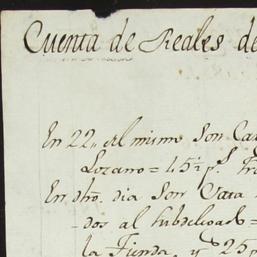 Cuenta de Reales de
En 22,, al mismo Son Ca
Lozano = 15½ p.s
En dho. dia Son Vara
dos al subdelegado =
la Tienda, y 25 p